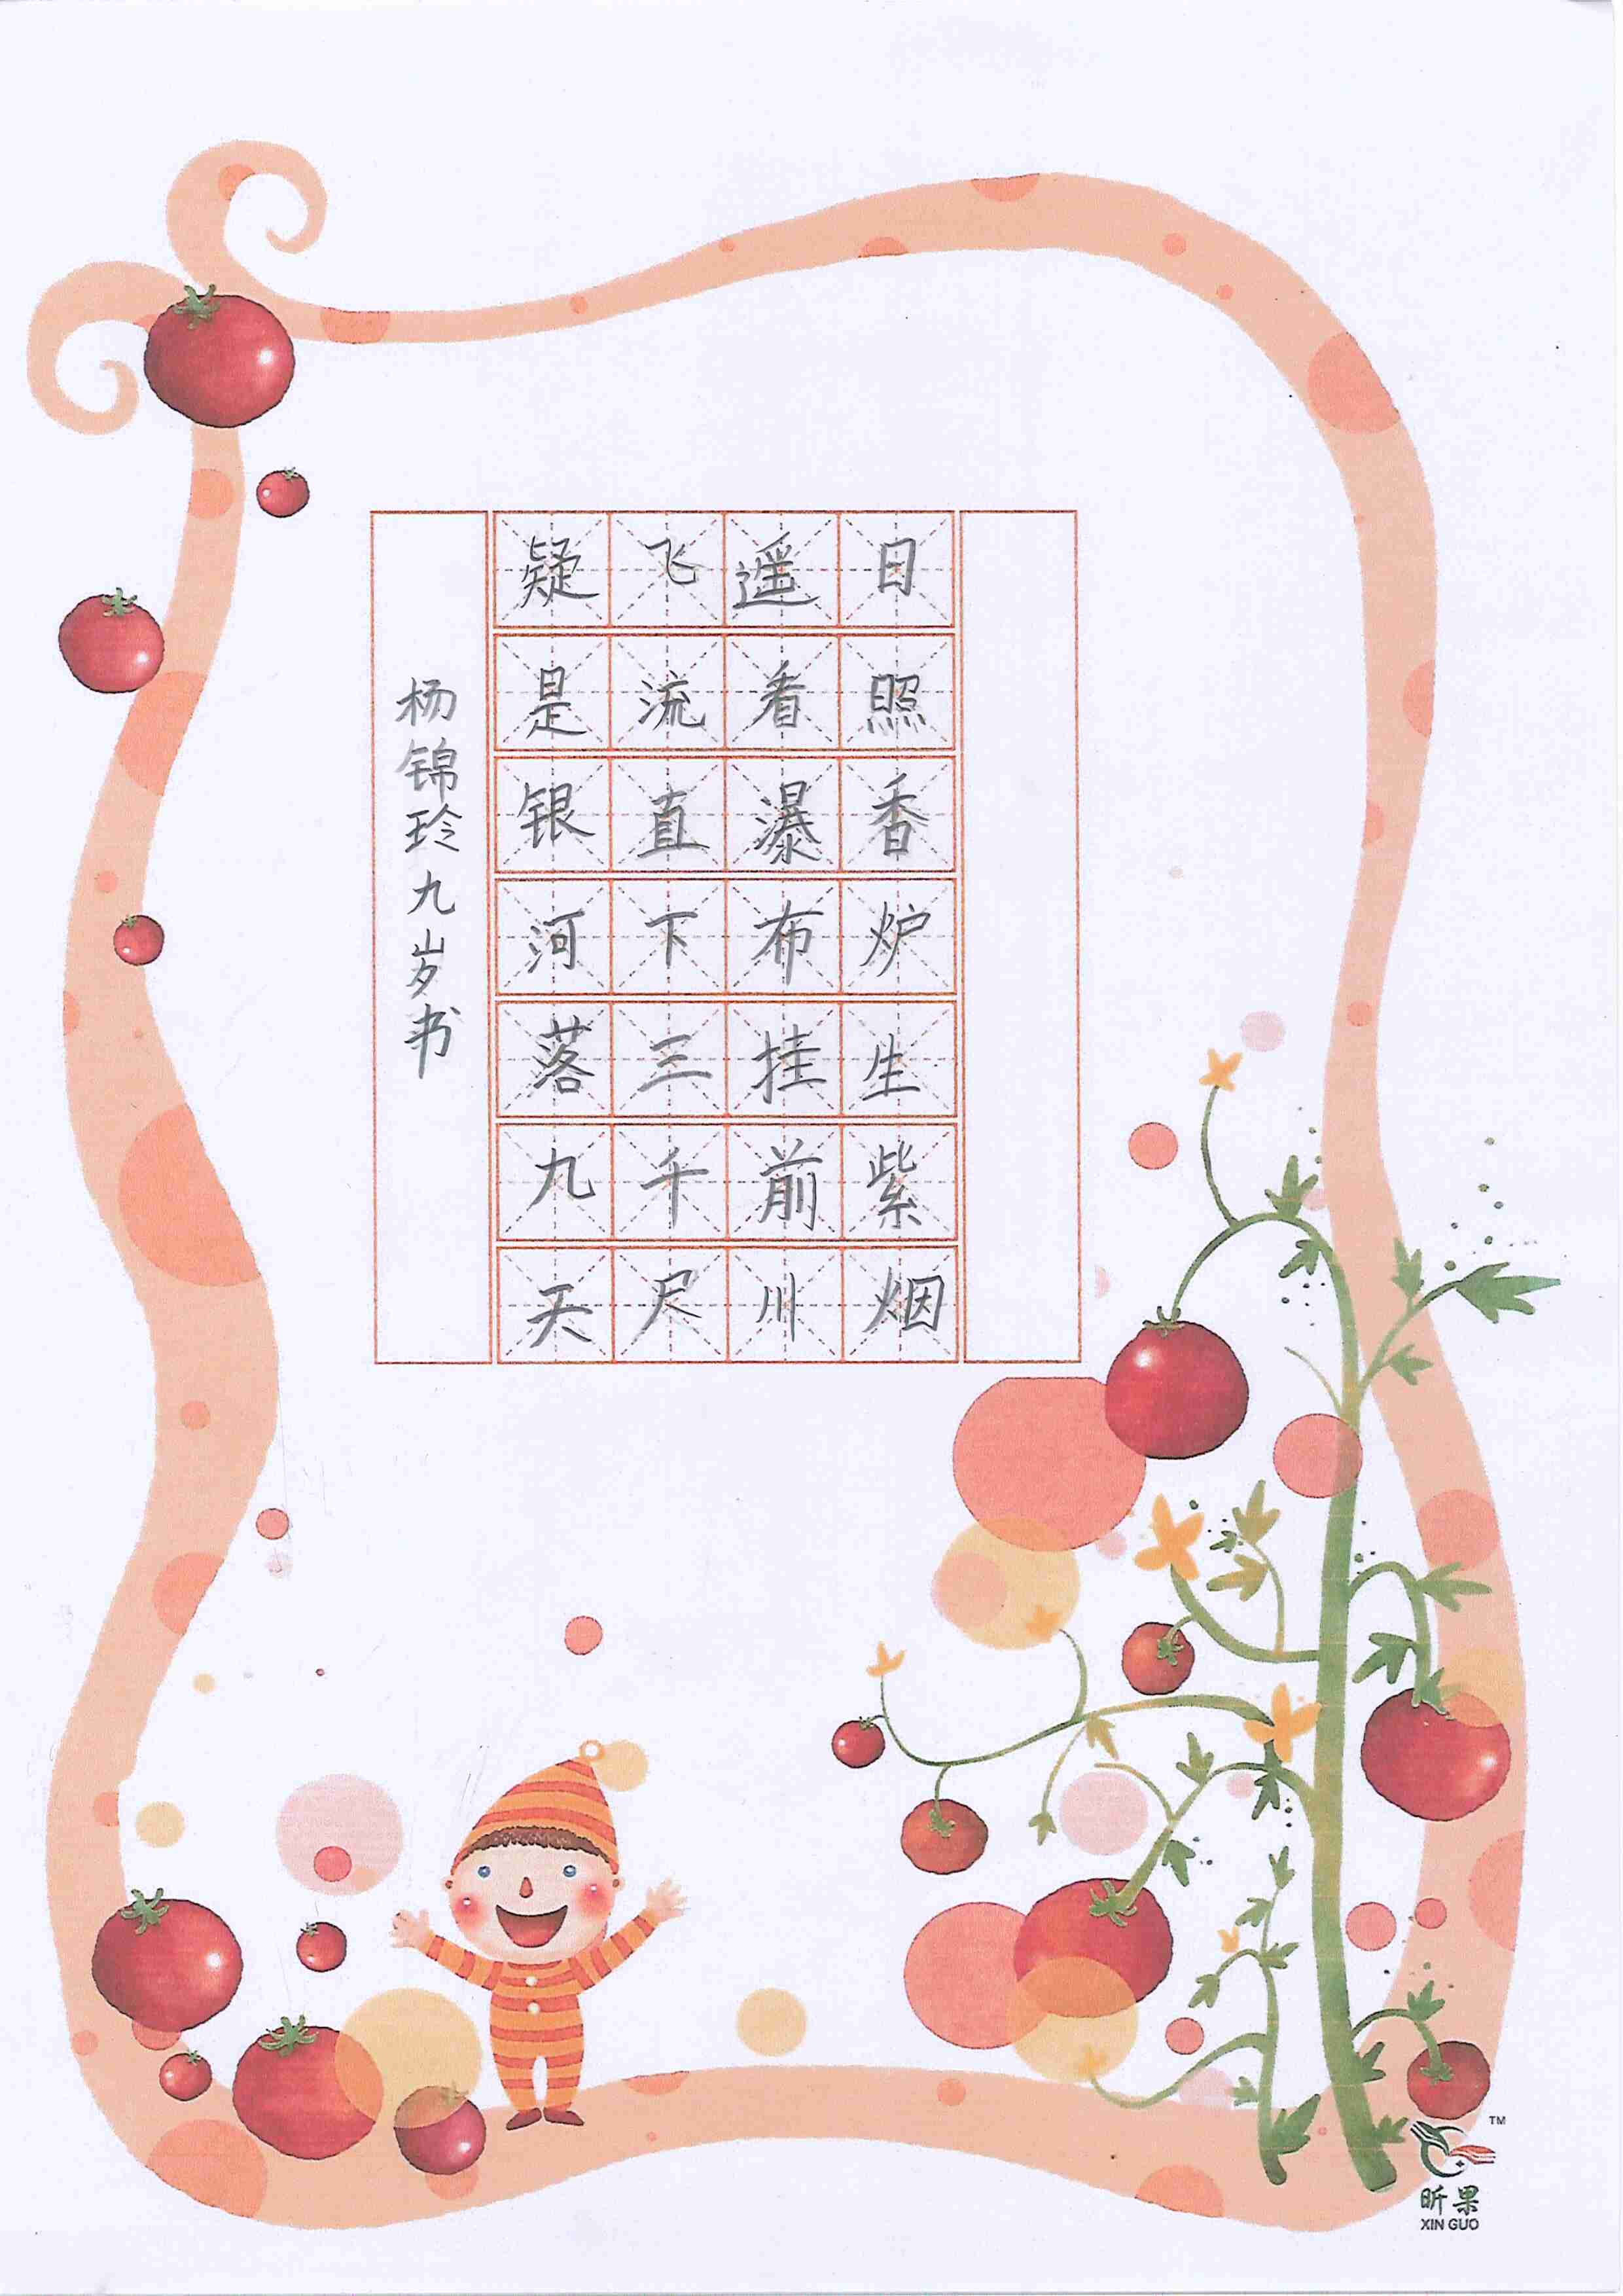 日照香炉生紫烟
遥看瀑布挂前川
飞流直下三千尺
疑是银河落九天
杨锦玲九岁书
TM
昕果
XIN GUO